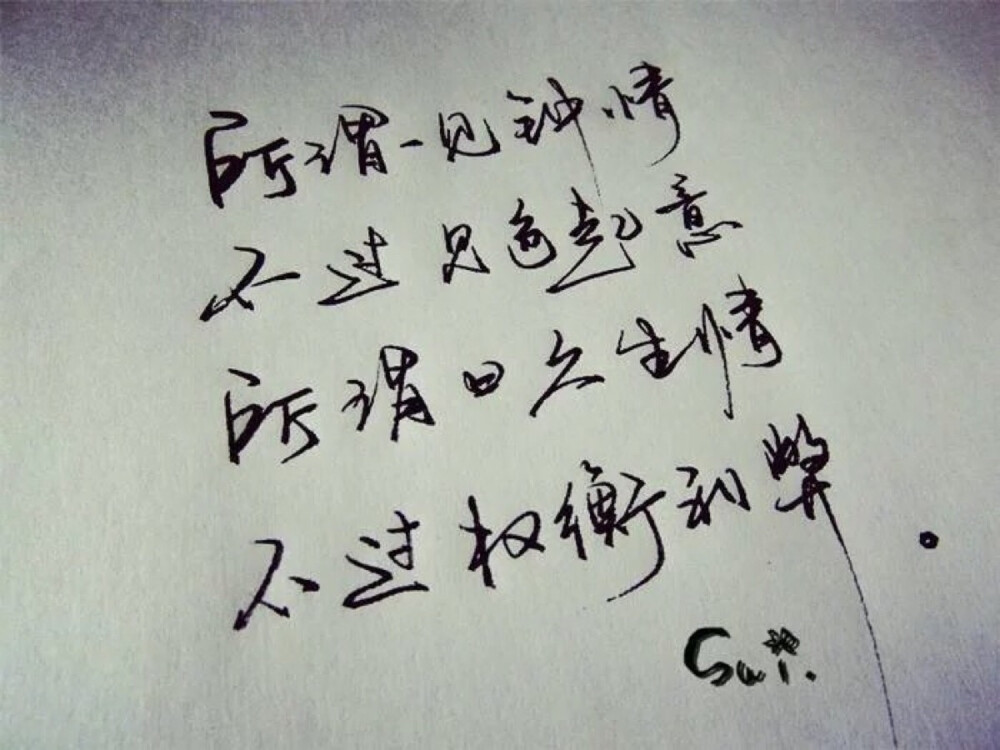 所谓一见钟情
不过见色起意
所谓日久生情
不过权衡利弊。
Sui.